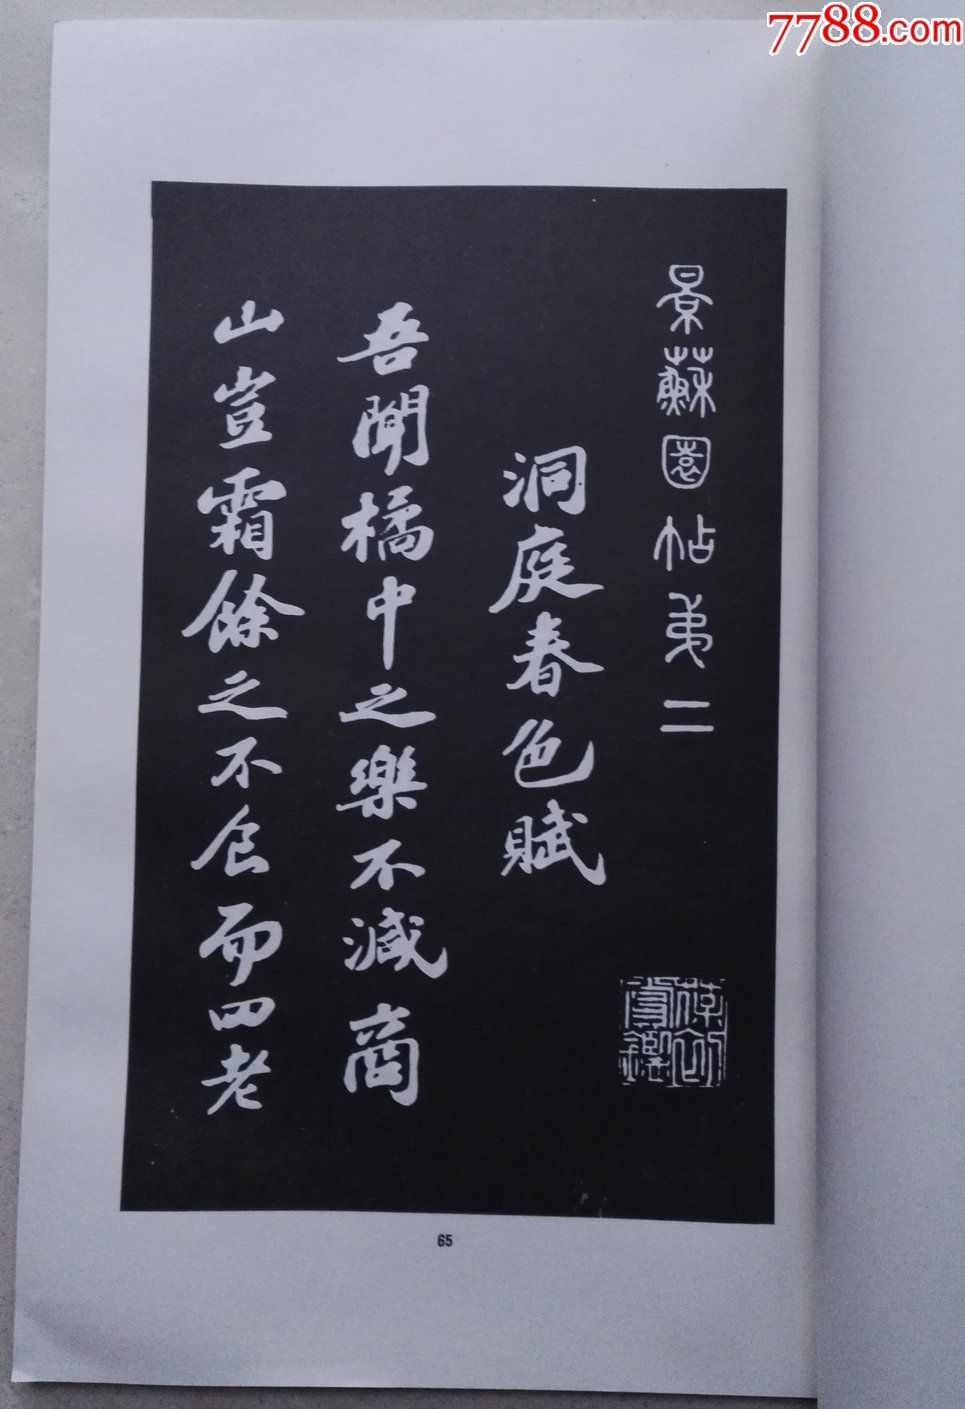 7788.com
景蘇園帖弟二
洞庭春色賦
吾聞橘中之樂不減商
山豈霜餘之不食而四老
65